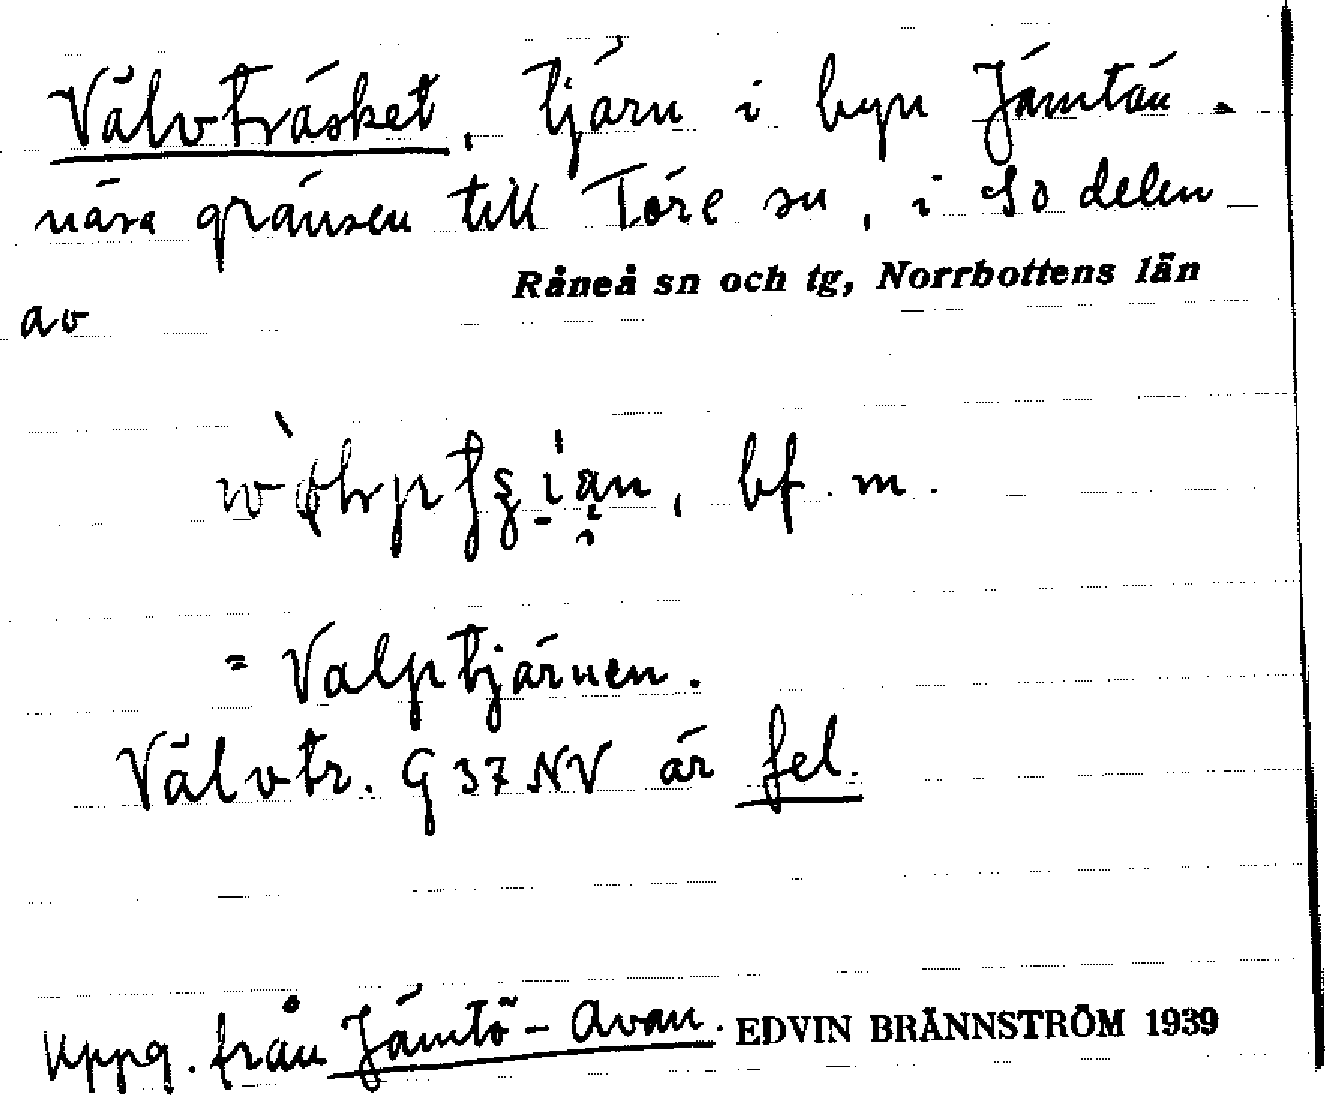 Välvträsket, tjärn i byn Jämtön
nära gränsen till Töre sn, i So delen
Råneå sn och tg, Norrbottens län
av
bf. m.
= Valptjärnen.
Välvtr. G 37 NV är fel.
Uppg. från Jämtö-Avan. EDVIN BRÄNNSTRÖM 1939